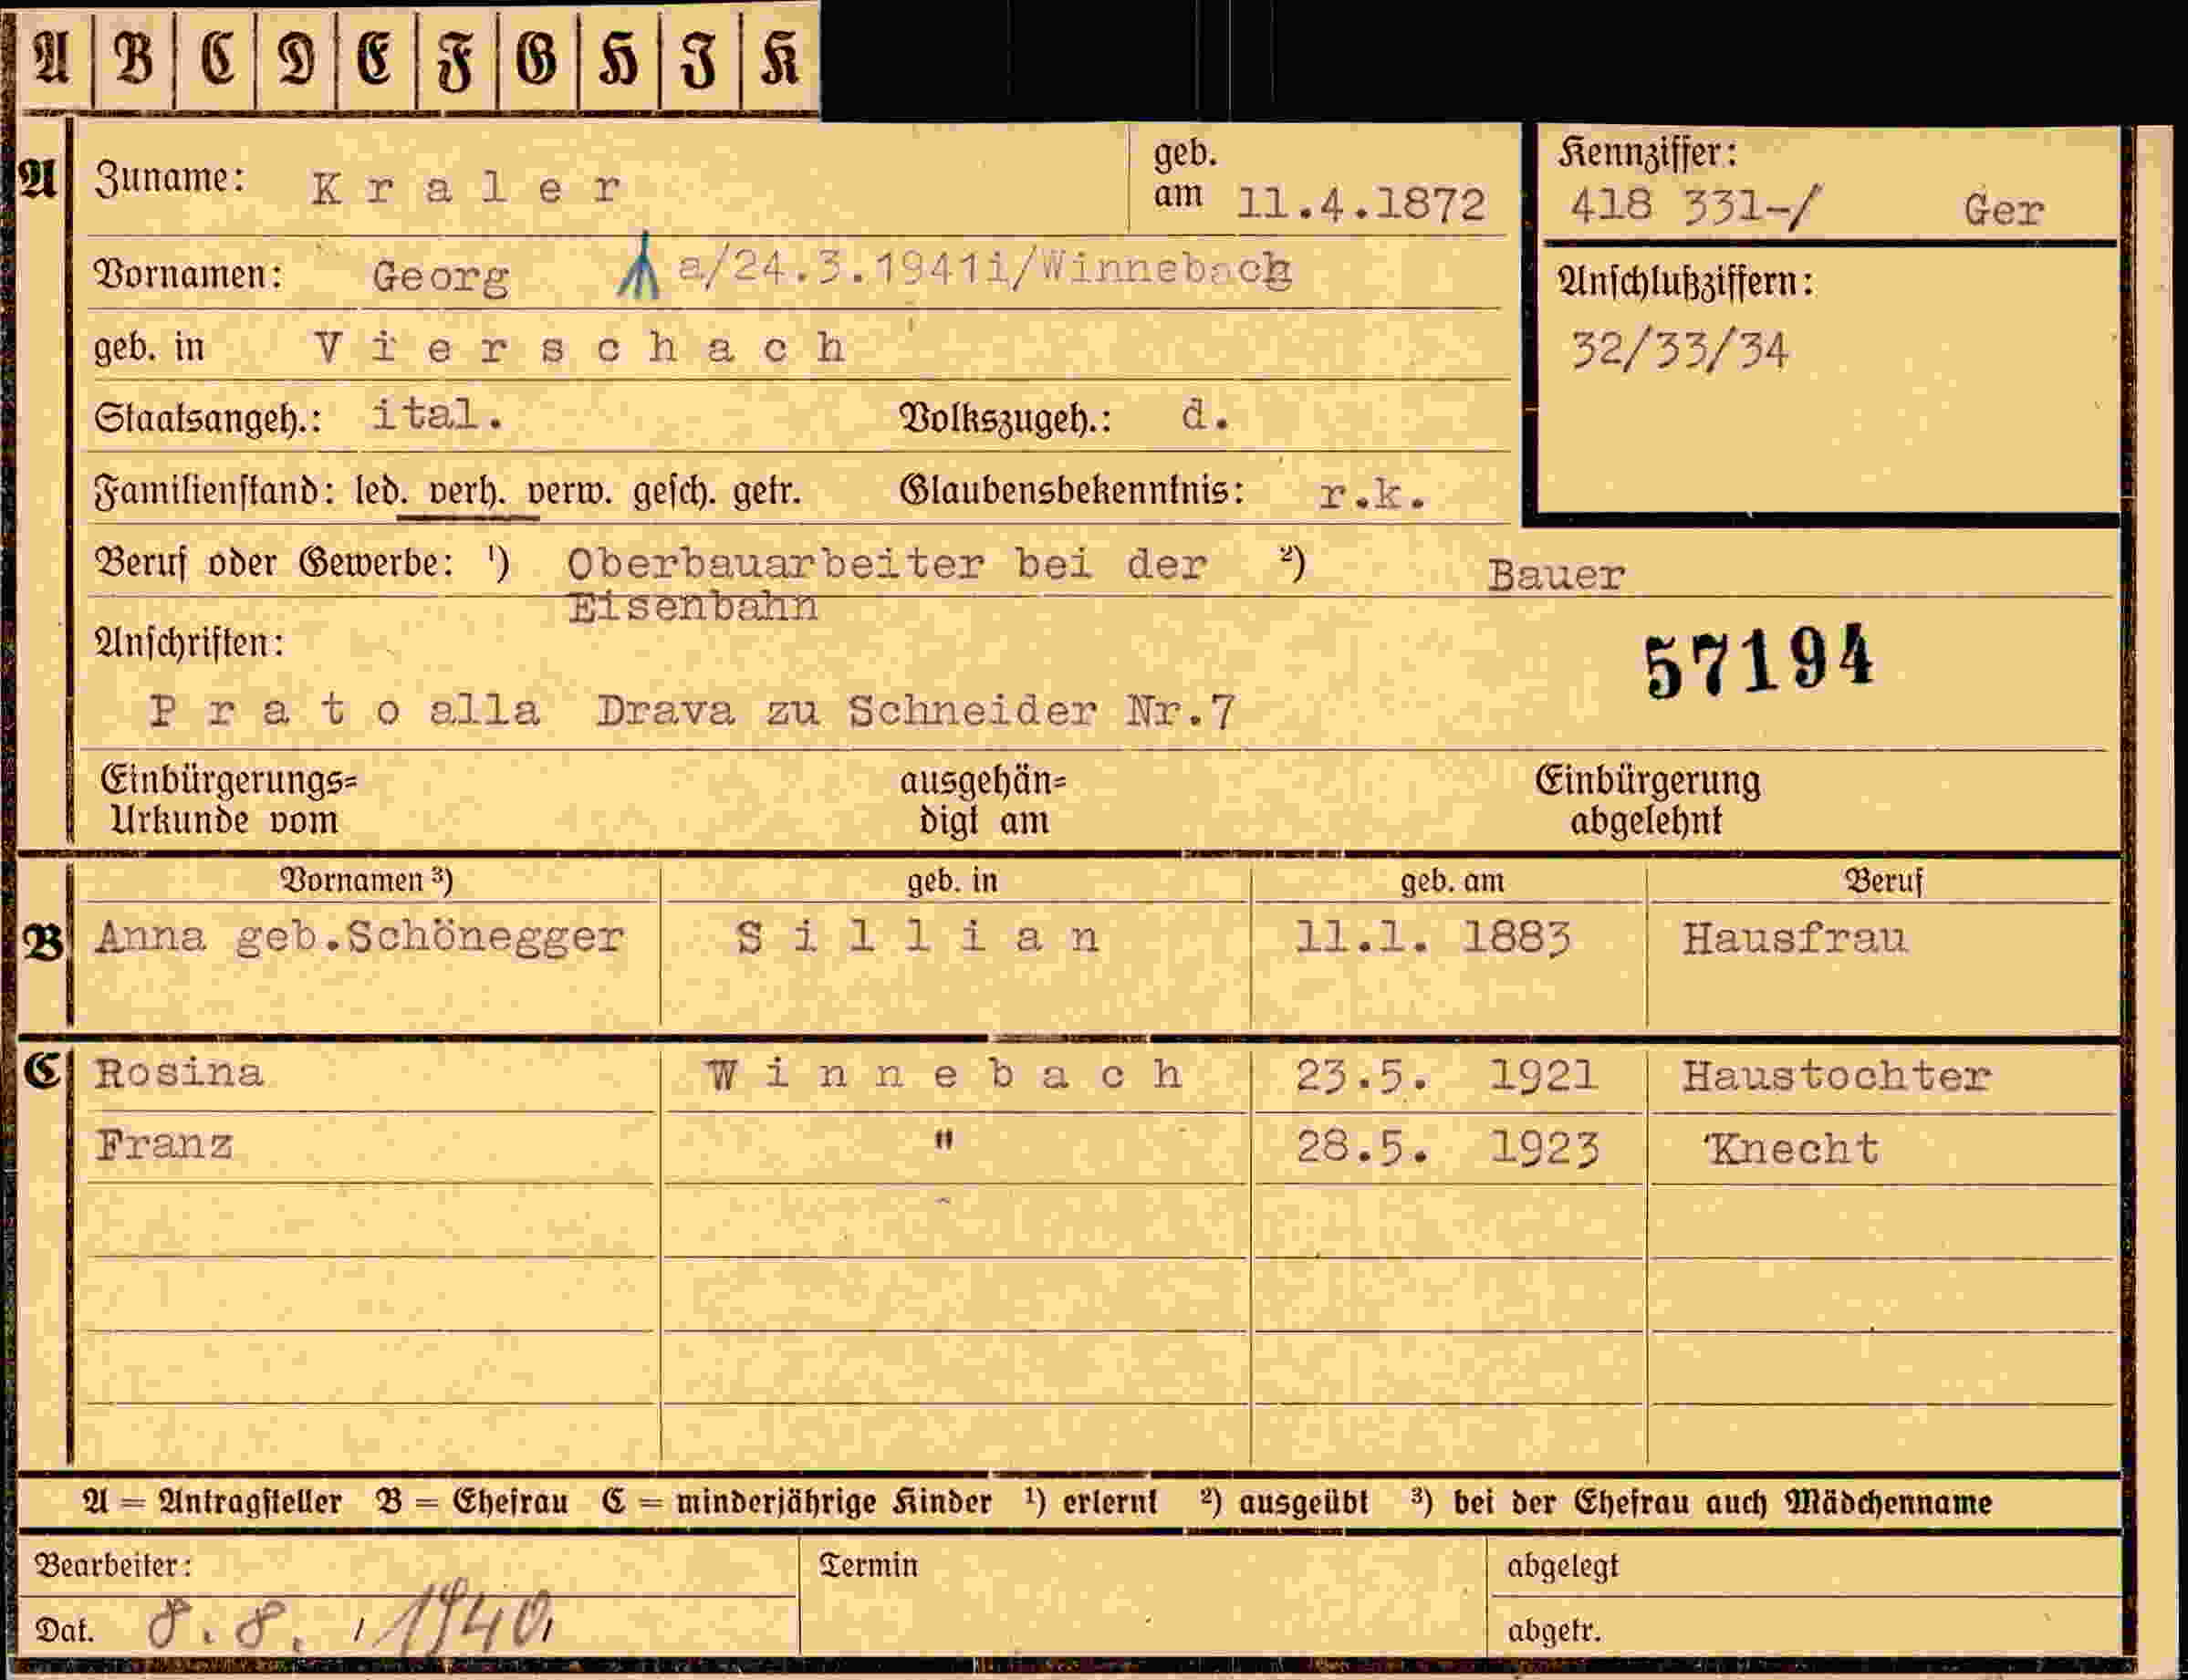 A B C D E F G H I K
A Zuname: Kraler geb. am 11.4.1872
Kennziffer:
418 331-/ Ger
Vornamen: Georg a/24.3.1941i/Winnebach
Anschlußziffern:
32/33/34
geb. in Vierschach
Staatsangeh.: ital. Volkszugeh.: d.
Familienstand: led. verh. verw. gesch. getr. Glaubensbekenntnis: r.k.
Beruf oder Gewerbe: ¹) Oberbauarbeiter bei der ²) Bauer
Eisenbahn
Anschriften:
57194
Prato alla Drava zu Schneider Nr.7
Einbürgerungs= ausgehän= Einbürgerung
Urkunde vom digt am abgelehnt
Vornamen ³) geb. in geb. am Beruf
B Anna geb.Schönegger Sillian 11.1. 1883 Hausfrau
C Rosina Winnebach 23.5. 1921 Haustochter
Franz " 28.5. 1923 Knecht
A = Antragsteller B = Ehefrau C = minderjährige Kinder ¹) erlernt ²) ausgeübt ³) bei der Ehefrau auch Mädchenname
Bearbeiter: Termin abgelegt
Dat. 8.8. 1940 abgetr.